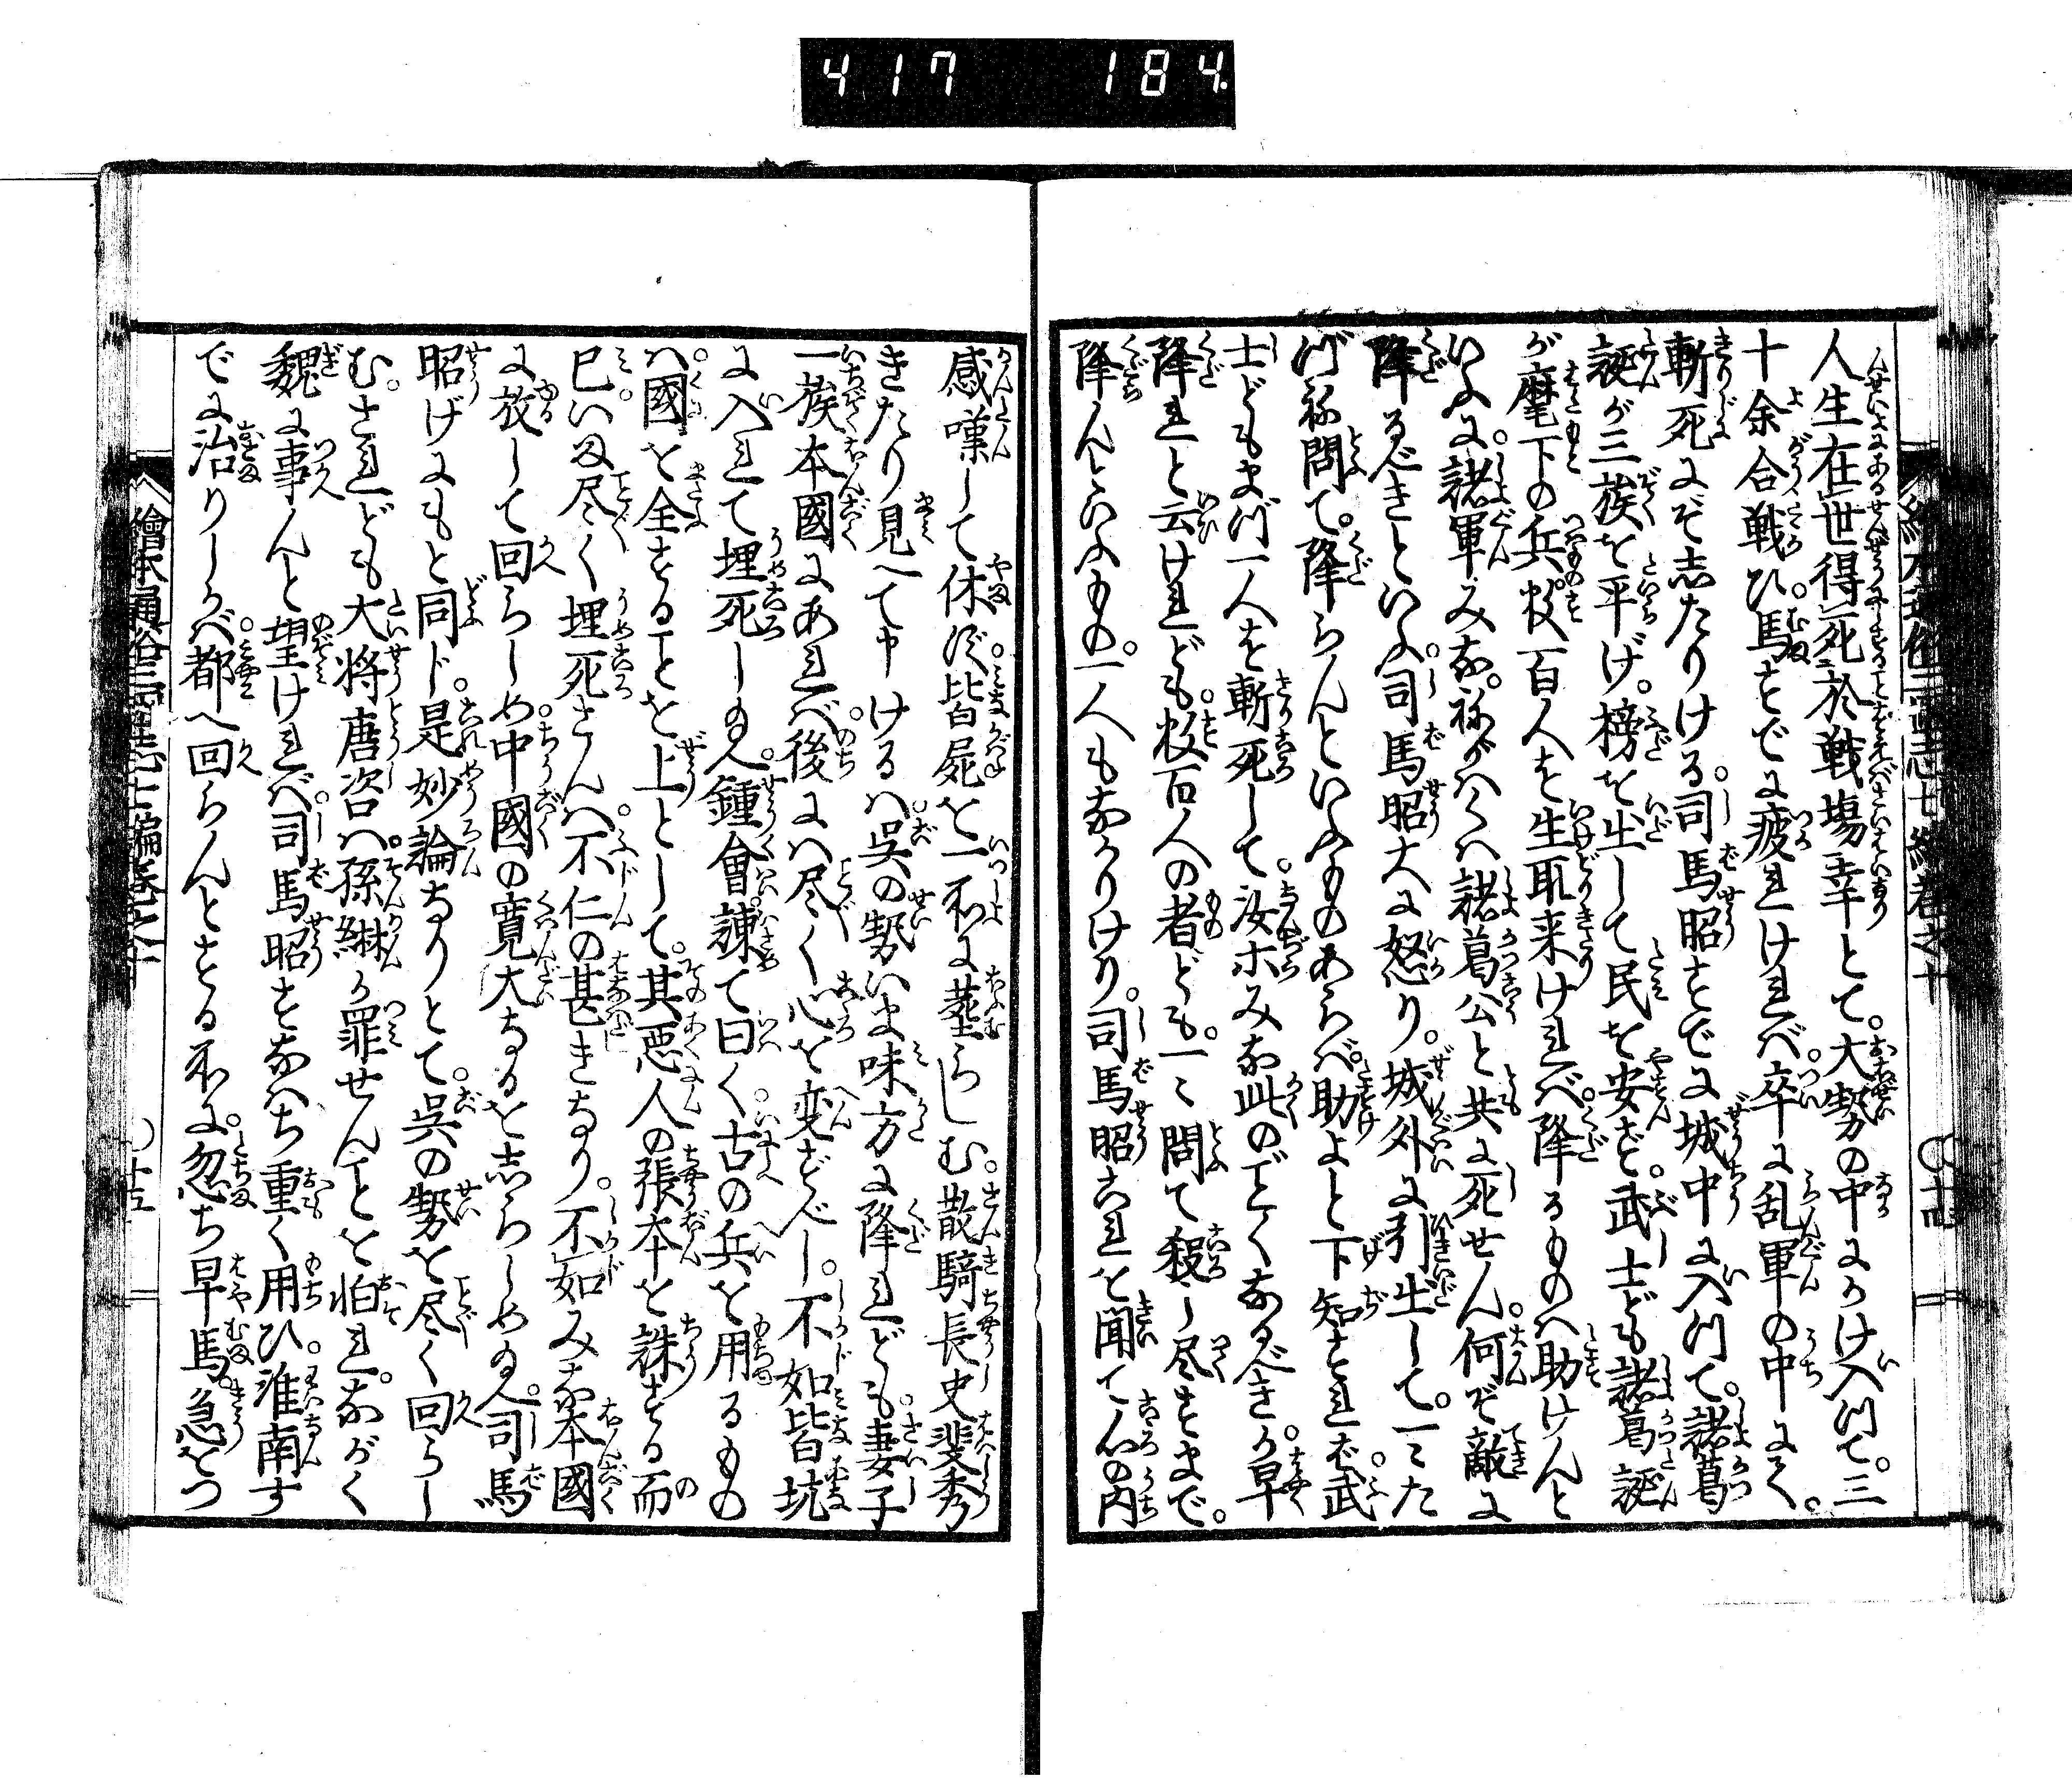 417 184
人生在世得死於戦場幸とて。大勢の中にかけ入て。三
十余合戦ひ。馬すでに疲れければ。卒に乱軍の中にて。
斬死にぞしたりける。司馬昭すでに城中に入て。諸葛
誕が三族を平げ。榜を出して民を安ず。武士ども諸葛誕
が麾下の兵数百人を生取来ければ。降るものハ助けんと
いふに。諸軍みな。ねがハくハ諸葛公と共に死せん。何ぞ敵に
降るべきといふ。司馬昭大に怒り。城外に引出して。一々た
づね問て。降らんといふものあらバ。助よと下知すれば。武
士どもまづ一人を斬死して。汝ホみな此のごとくなるべき。か早
降れと云けれども。数百人の者ども。一々問て殺し尽すまで。
降んといふもの。一人もなかりけり。司馬昭これを聞て心の内
感嘆して休ず。皆屍を一所に葬らしむ。散騎長史斐秀
きたり見へて申けるハ。呉の勢いま味方に降れども。妻子
一族本國にあれバ。後にハ尽く心を変ずべし。不如皆坑
に入れて埋死しめん。鍾會諫て曰く。古の兵を用るもの
ハ。國を全するヿを上として。其悪人の張本を誅する而
巳。いま尽く埋死さんハ。不仁の甚きなり。不如みな本國
に放して回らしめ。中國の寛大なるを志らしめん。司馬
昭げにもと同ド。是妙論なりとて。呉の勢を尽く回らし
む。されども大将唐咨ハ。孫綝か罪せんヿを怕れ。ながく
魏に事んと望ければ。司馬昭すなハち重く用ひ。淮南す
でに治りしかバ。都へ回らんとする所に。忽ち早馬。急をつ
繪本通俗三國志七編巻之十 ○十五